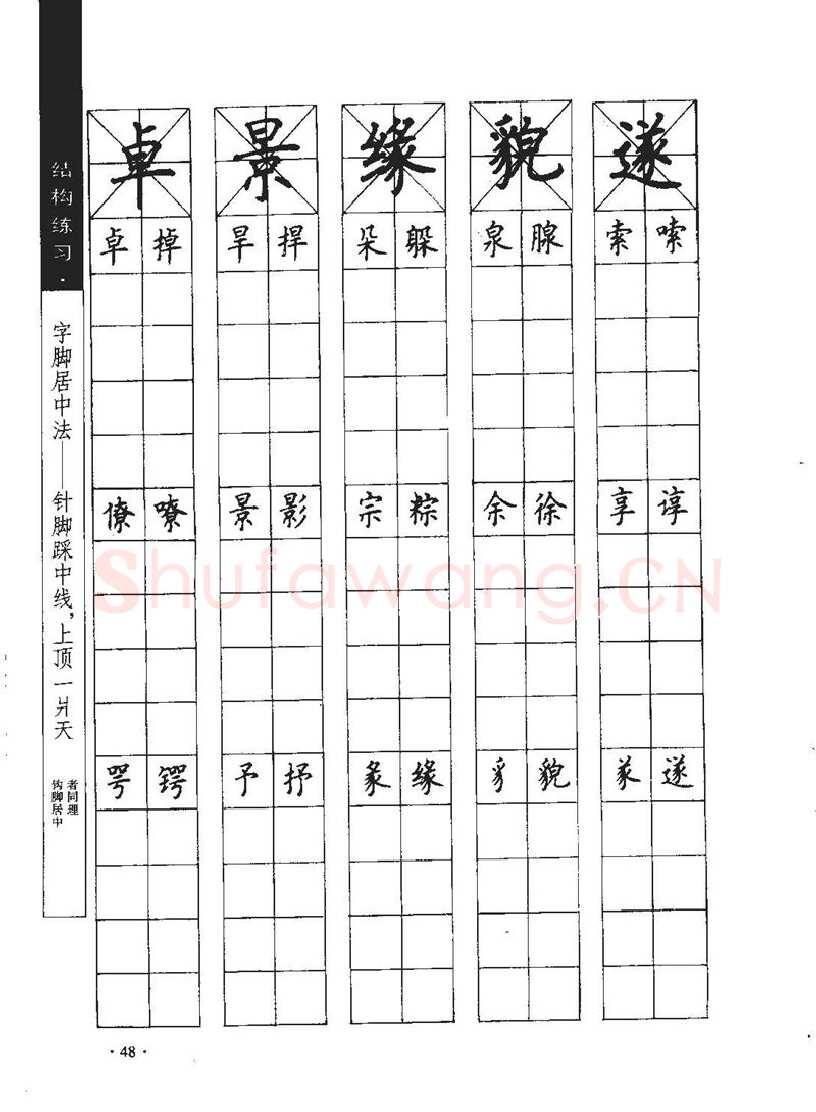 结构练习·
字脚居中法——针脚踩中线，上顶一爿天
钩脚居中
者同理
卓 景 缘 貌 遂
卓 掉 旱 捍 朵 躲 泉 腺 索 嗦
僚 嘹 景 影 宗 粽 余 徐 享 谆
咢 锷 予 抒 彖 缘 豸 貌 㒸 遂
shufawang.CN
·48·